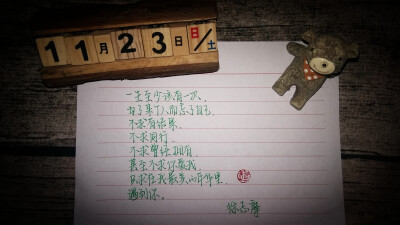 11月23日 日/土
一生至少该有一次，
为了某个人而忘了自己，
不求有结果，
不求同行，
不求曾经拥有，
甚至不求你爱我，
只求在我最美的年华里，
遇到你。
徐志摩